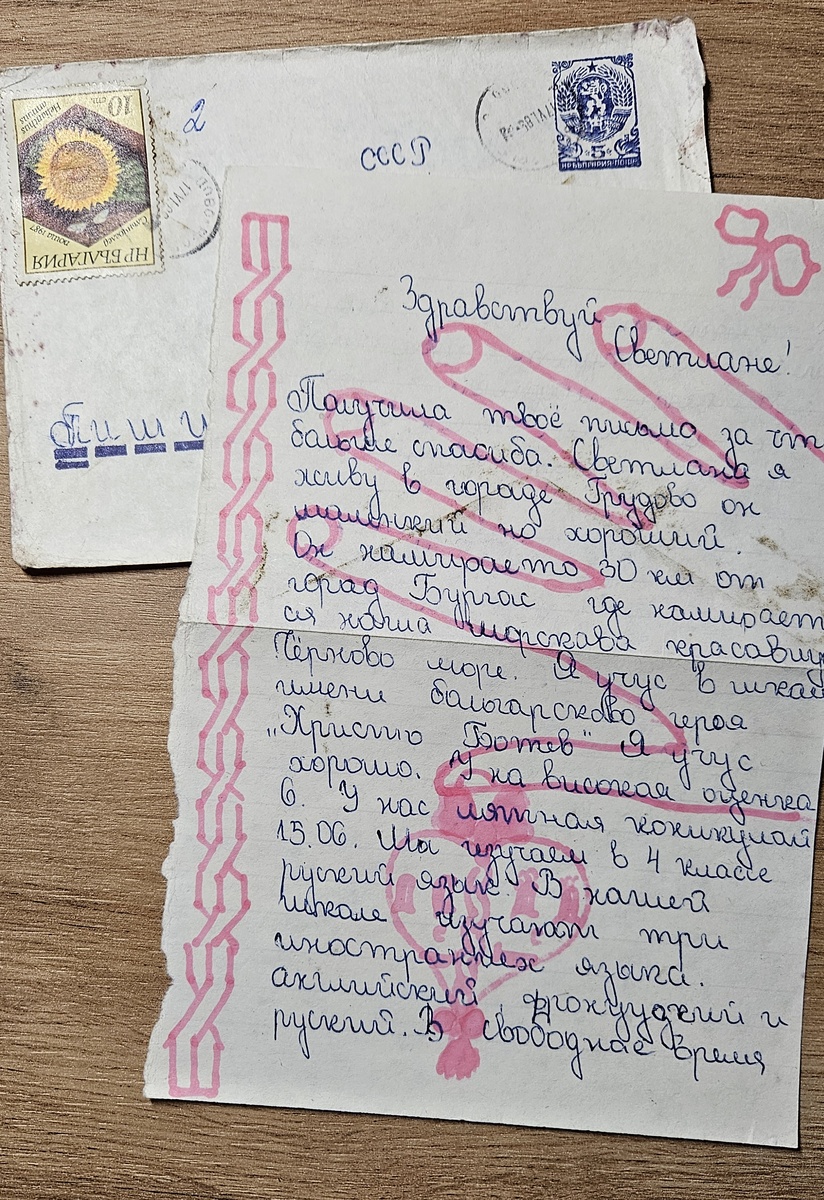 10
СТ.
Helianthus
annuus
Слънчоглед
поща 1987
НР БЪЛГАРИЯ
2
СССР
5
НР БЪЛГАРИЯ ПОЩА
Пиши
Здравствуй
Светлане!
Палучила твоё письмо за чт
балшие спасиба. Светлана я
живу в городе Грудово он
маленкий но хороший.
Он намираето 30 км от
город Бургас где намирает
ся наша морскава красавиц
Чёрново море. Я учус в шкал
имени балгарсково героя
„Христо Ботев" Я учус
хорошо. У на високая оценка
6. У нас лятная коникулай
15.06. Мы изучаем в 4 класе
руский язык. В нашей
шкале изучают три
иностраннех языка.
английский, фронцузкий и
руский. В свободнае время